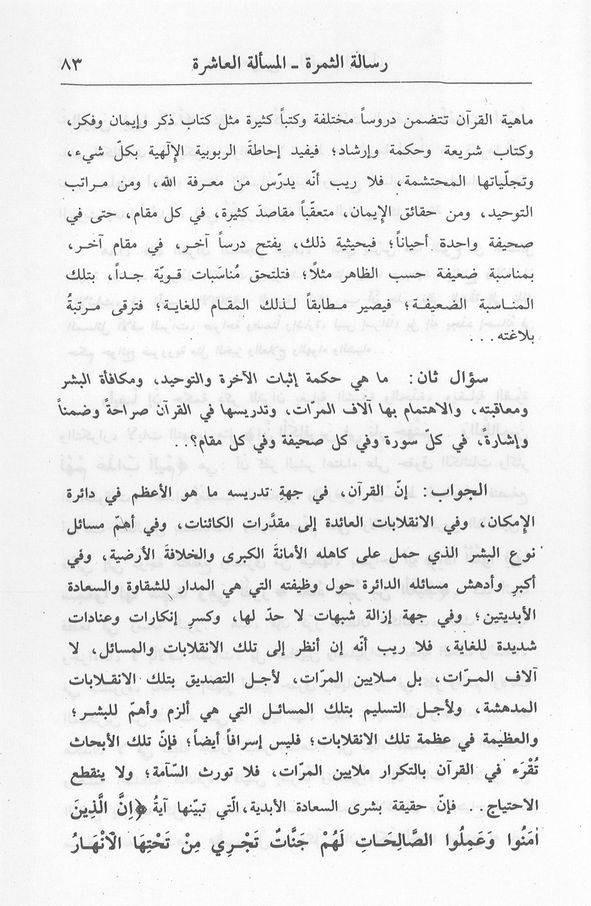 رسالة الثمرة ـ المسألة العاشرة ٨٣
ماهية القرآن تتضمن دروساً مختلفة وكتباً كثيرة مثل كتاب ذكر وإيمان وفكر،
وكتاب شريعة وحكمة وإرشاد؛ فيفيد إحاطةَ الربوبية الإلٰهية بكلّ شيء،
وتجلّياتها المحتشمة، فلا ريب أنّه يدرّس من معرفة الله، ومن مراتب
التوحيد، ومن حقائق الإيمان، متعقّباً مقاصدَ كثيرة، في كل مقام، حتى في
صحيفة واحدة أحياناً؛ فبحيثية ذلك، يفتح درساً آخر، في مقام آخر،
بمناسبة ضعيفة حسب الظاهر مثلًا؛ فتلتحق مُناسَبات قويّة جداً، بتلك
المناسبة الضعيفة؛ فيصير مطابقاً لذلك المقام للغاية؛ فترقى مرتبةُ
بلاغته...
سؤال ثان: ما هي حكمة إثبات الآخرة والتوحيد، ومكافأة البشر
ومعاقبته، والاهتمام بها آلاف المرّات، وتدريسها في القرآن صراحةً وضمناً
وإشارةً، في كلّ سورة وفي كل صحيفة وفي كل مقام؟..
الجواب: إنّ القرآن، في جهةِ تدريسه ما هو الأعظم في دائرة
الإمكان، وفي الانقلابات العائدة إلى مقدَّرات الكائنات، وفي أهمّ مسائل
نوع البشر الذي حمل على كاهله الأمانةَ الكبرى والخلافةَ الأرضية، وفي
أكبرِ وأدهش مسائله الدائرة حول وظيفته التي هي المدار للشقاوة والسعادة
الأبديتين؛ وفي جهة إزالة شبهات لا حدّ لها، وكسرِ إنكارات وعنادات
شديدة للغاية، فلا ريب أنّه إن أنظر إلى تلك الانقلابات والمسائل، لا
آلاف المرّات، بل ملايين المرّات، لأجل التصديق بتلك الانقلابات
المدهشة، ولأجل التسليم بتلك المسائل التي هي ألزم وأهمّ للبشر؛
والعظيمة في عظمة تلك الانقلابات؛ فليس إسرافاً أيضاً؛ فإنّ تلك الأبحاث
تُقْرَء في القرآن بالتكرار ملايين المرّات، فلا تورث السّآمة؛ ولا ينقطع
الاحتياج.. فإنّ حقيقة بشرى السعادة الأبدية،الّتي تبيّنها آيةُ ﴿إِنَّ الَّذِينَ
اٰمَنُوا وَعَمِلُوا الصَّالِحَاتِ لَهُمْ جَنَّاتٌ تَجْرِي مِنْ تَحْتِهَا الْاَنْهَارُ